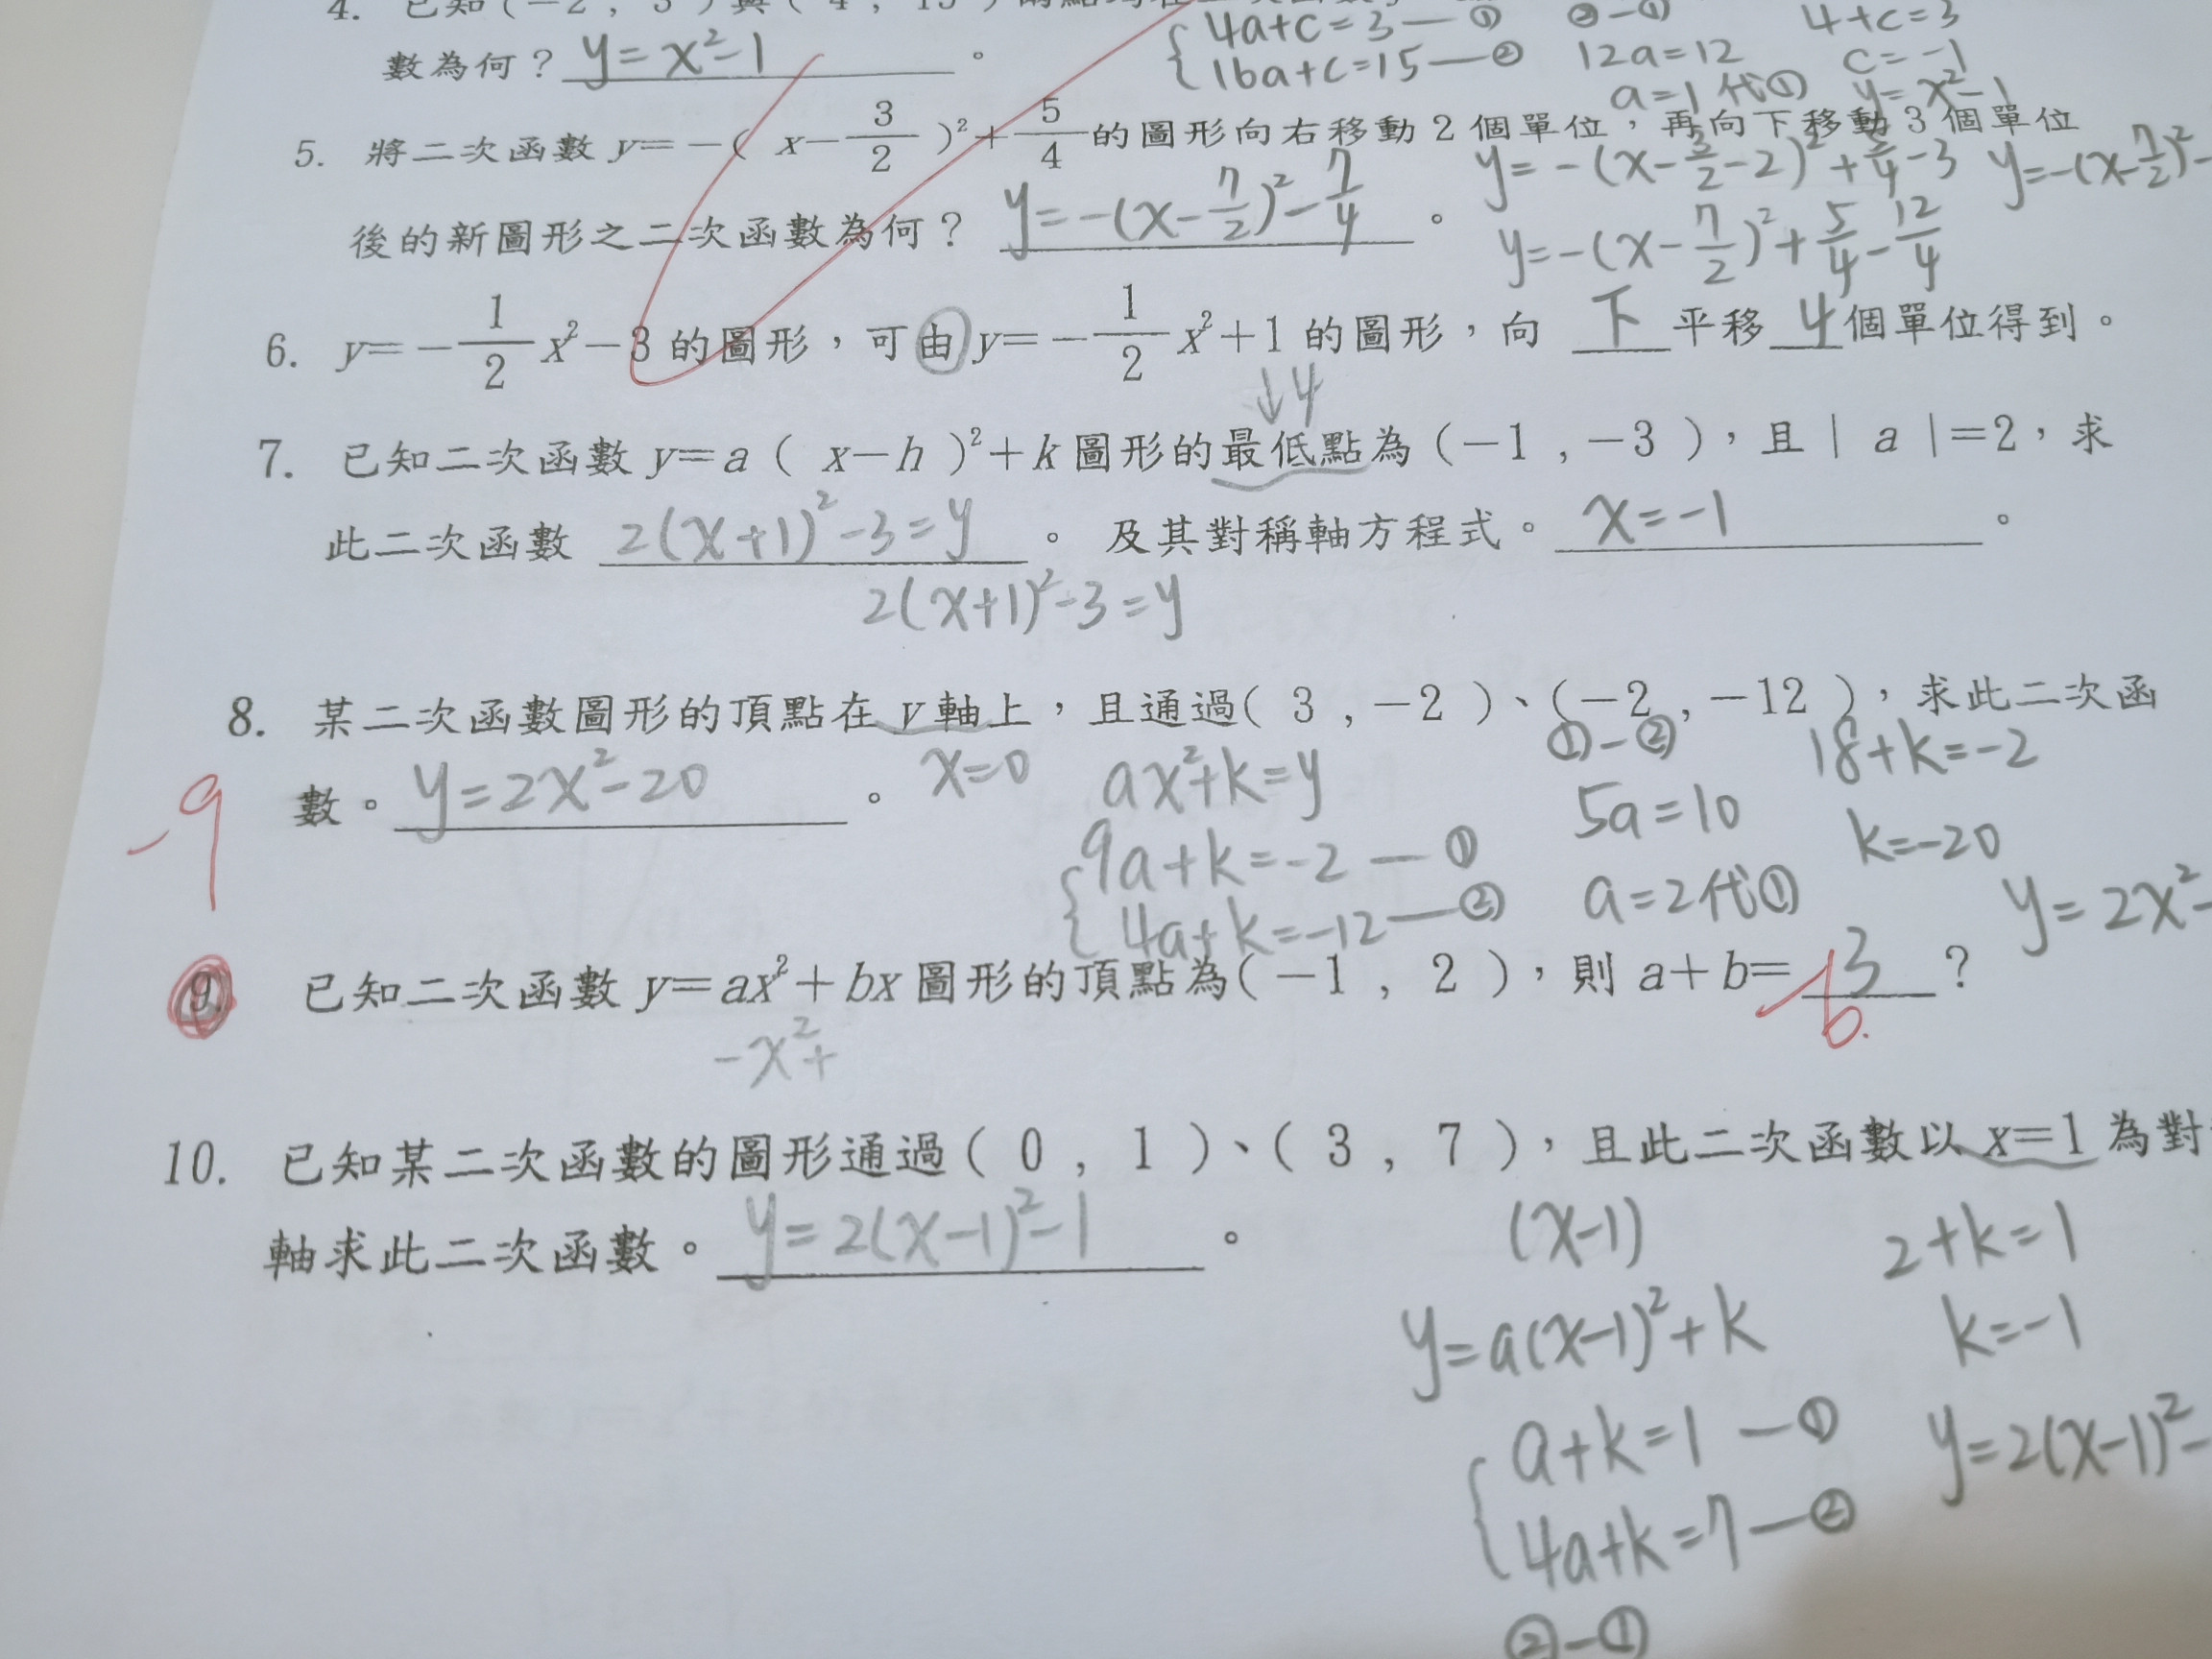 4. 已知(-2, 3)與(4, 15)
4a+c=3—① ②-① 4+c=3
數為何？y=x²-1。 16a+c=15—② 12a=12 c=-1
a=1代① y=x²-1
5. 將二次函數 y=-( x-3/2 )²+5/4的圖形向右移動2個單位，再向下移動3個單位
y=-(x-3/2-2)²+5/4-3 y=-(x-7/2)²-
後的新圖形之二次函數為何？ y=-(x-7/2)²-7/4。
y=-(x-7/2)²+5/4-12/4
6. y=-1/2x²-3的圖形，可由y=-1/2x²+1的圖形，向 下平移4個單位得到。
↓4
7. 已知二次函數y=a( x-h )²+k圖形的最低點為(-1,-3)，且| a |=2，求
此二次函數 2(x+1)²-3=y。 及其對稱軸方程式。x=-1。
2(x+1)²-3=y
8. 某二次函數圖形的頂點在y軸上，且通過( 3 ,-2 )、(-2,-12 )，求此二次函
①-② 18+k=-2
數。y=2x²-20。 x=0 ax²+k=y
-9
5a=10 k=-20
9a+k=-2—①
a=2代① y=2x²-
4a+k=-12—②
9. 已知二次函數y=ax²+bx圖形的頂點為(-1 , 2 )，則a+b=3？
-6.
-x²+
10. 已知某二次函數的圖形通過( 0 , 1 )、( 3 , 7 )，且此二次函數以x=1為對
軸求此二次函數。y=2(x-1)²-1。
(x-1) 2+k=1
y=a(x-1)²+k k=-1
a+k=1—① y=2(x-1)²-
4a+k=7—②
②-①